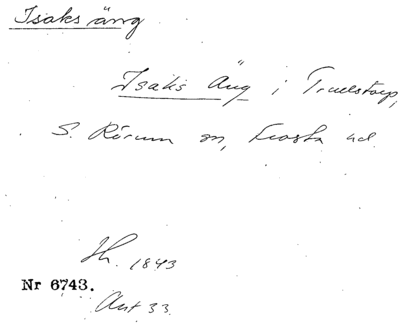 Isaks äng
Isaks Äng i Truedstorp,
S. Rörum sn, Frosta hd.
Jh. 1843
Nr 6743.
Ant 33.